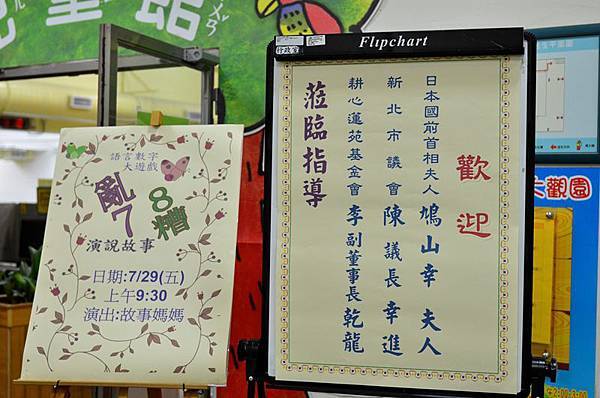 語言數字
大遊戲
亂
7
8
糟
演說故事
日期:7/29(五)
上午9:30
演出:故事媽媽
Flipchart
歡迎
日本國前首相夫人 鳩山幸 夫人
新北市議會 陳議長 幸進
耕心蓮苑基金會 李副董事長 乾龍
蒞臨指導
大觀園